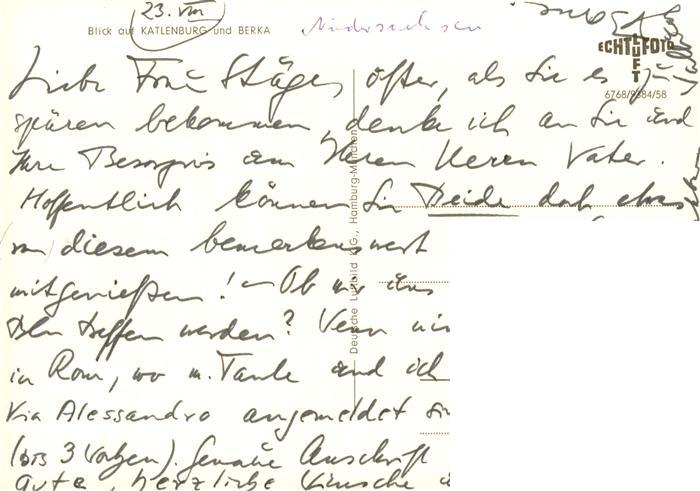 23. VIII
Blick auf KATLENBURG und BERKA
Niedersachsen
ECHT LUFTFOTO
6768/9384/58
Deutsche Luftbild K.G., Hamburg-München
Liebe Frau Stäges, öfter, als Sie es zu
spüren bekommen, denke ich an Sie und
Ihre Besorgnis um Ihren Herrn Vater.
Hoffentlich können Sie Beide doch etwas
von diesem bemerkenswert
mitgenießen! – Ob wir uns
treffen werden? Wenn
in Rom, wo m. Tante und ich
Via Alessandro angemeldet
(bis 3 Wochen). Genaue Anschrift
gute, herzliche Wünsche